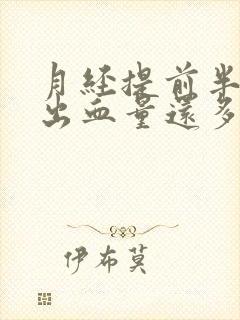 月经提前半
出血量还多
伊布莫